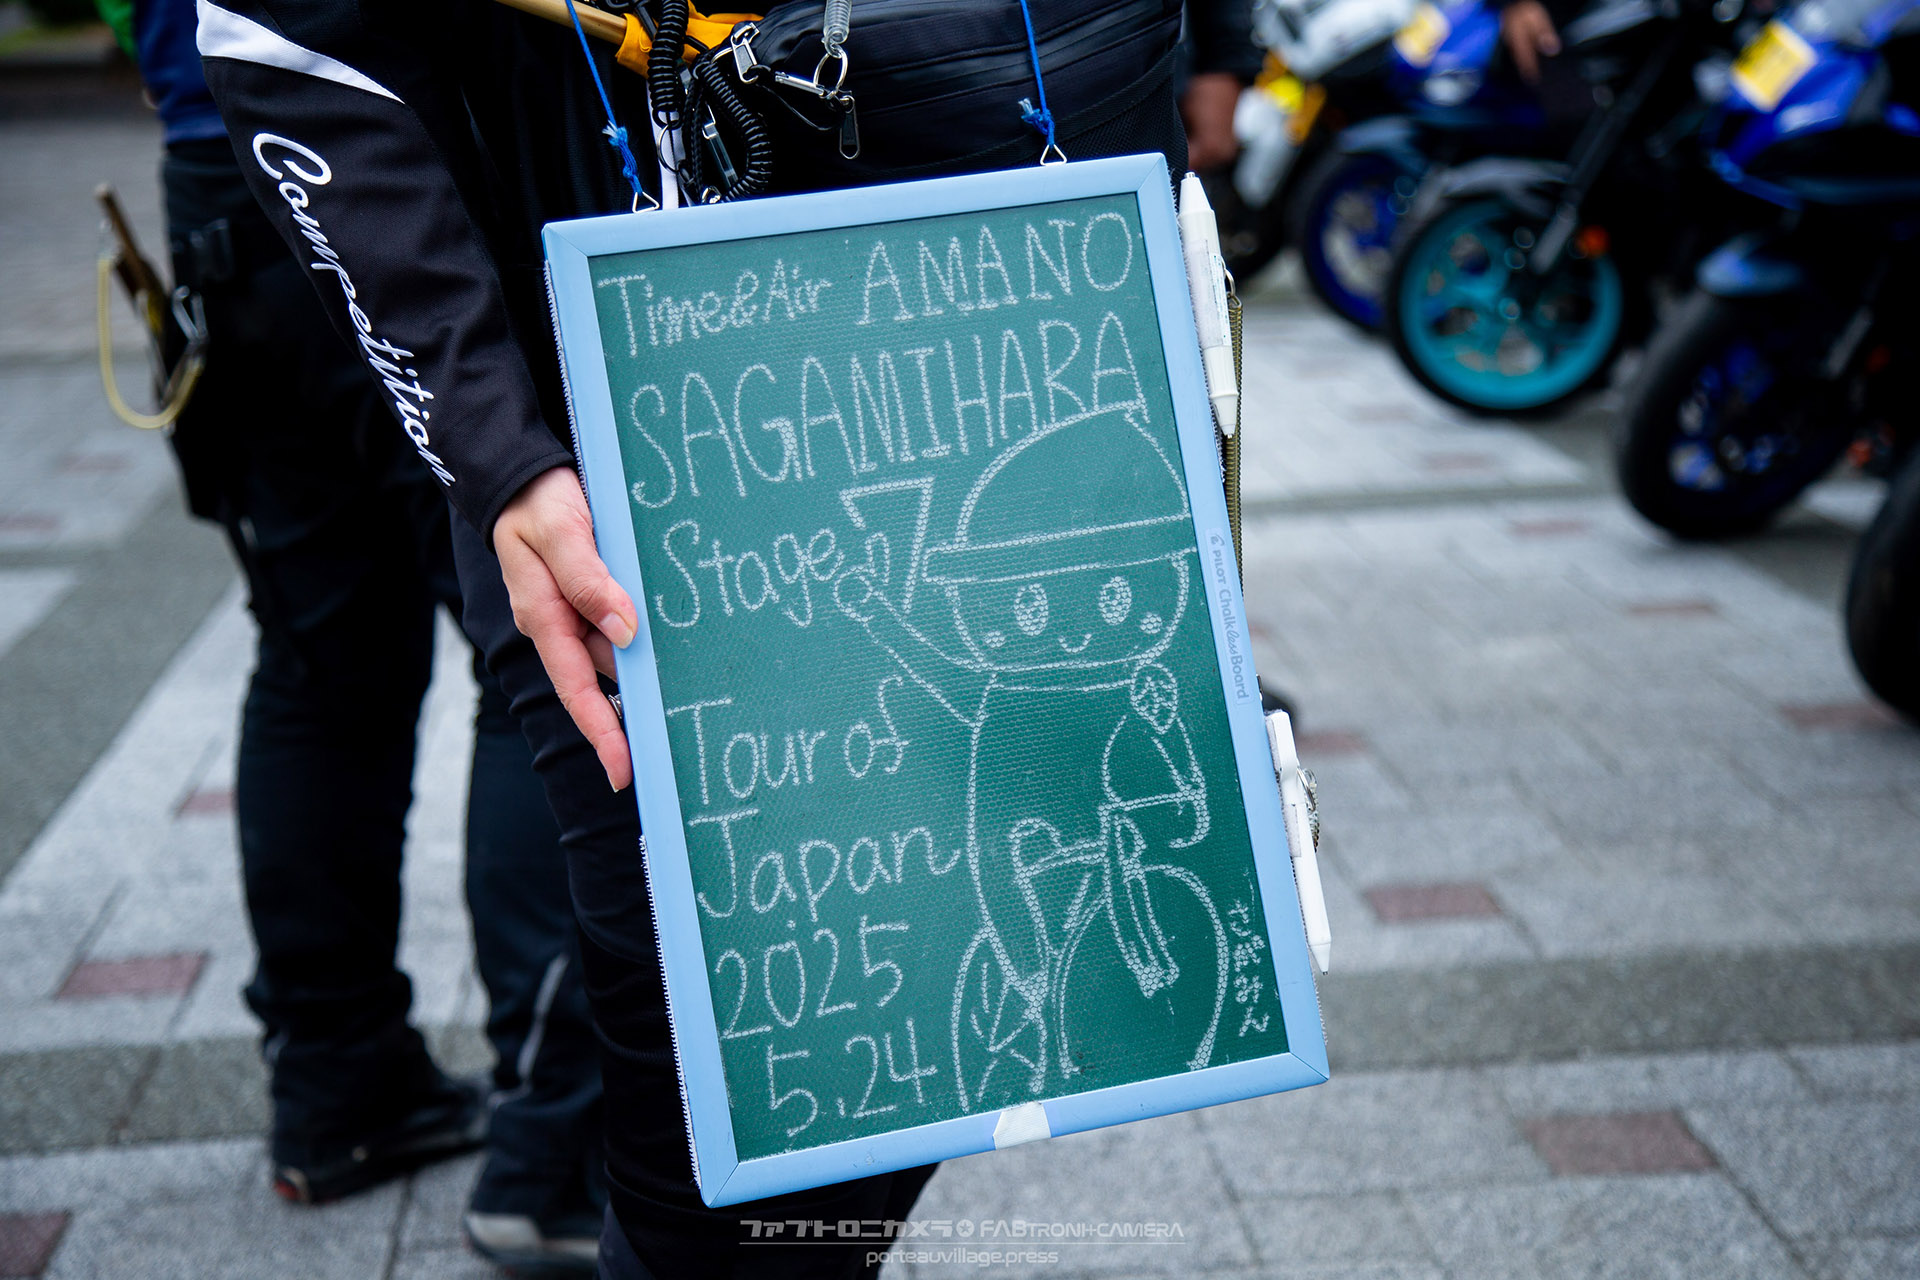 Competition
Time&Air AMANO
SAGAMIHARA
Stage 7
Tour of
Japan
2025
5.24
PILOT Chalkless Board
ファブトロニカメラ FABTRONI+CAMERA
porteauvillage.press